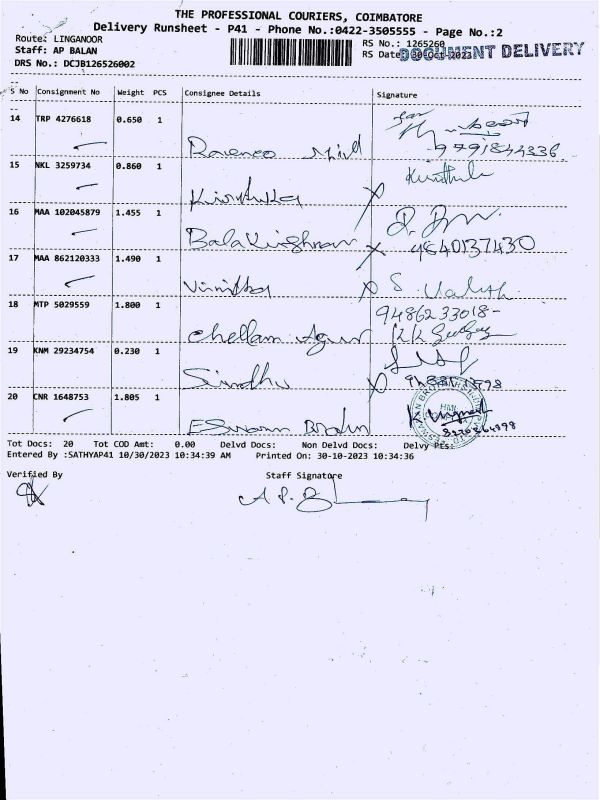 THE PROFESSIONAL COURIERS, COIMBATORE
Delivery Runsheet - P41 - Phone No.:0422-3505555 - Page No.:2
Route: LINGANOOR
RS No.: 1265260
Staff: AP BALAN
RS Date: 30-Oct-2023
DOCUMENT DELIVERY
DRS No.: DCJB126526002
S No Consignment No Weight PCS Consignee Details Signature
14 TRP 4276618 0.650 1
9791844336
15 NKL 3259734 0.860 1
Kiruthika
16 MAA 102045879 1.455 1
Balakrishnan
17 MAA 862120333 1.490 1
Vinitha
18 MTP 5029559 1.800 1
9486233018-
Chellam Agency
19 KNM 29234754 0.230 1
Sindhu
20 CNR 1648753 1.805 1
Tot Docs: 20 Tot COD Amt: 0.00 Delvd Docs: Non Delvd Docs: Delvy PEs:
Entered By :SATHYAP41 10/30/2023 10:34:39 AM Printed On: 30-10-2023 10:34:36
Verified By Staff Signatore